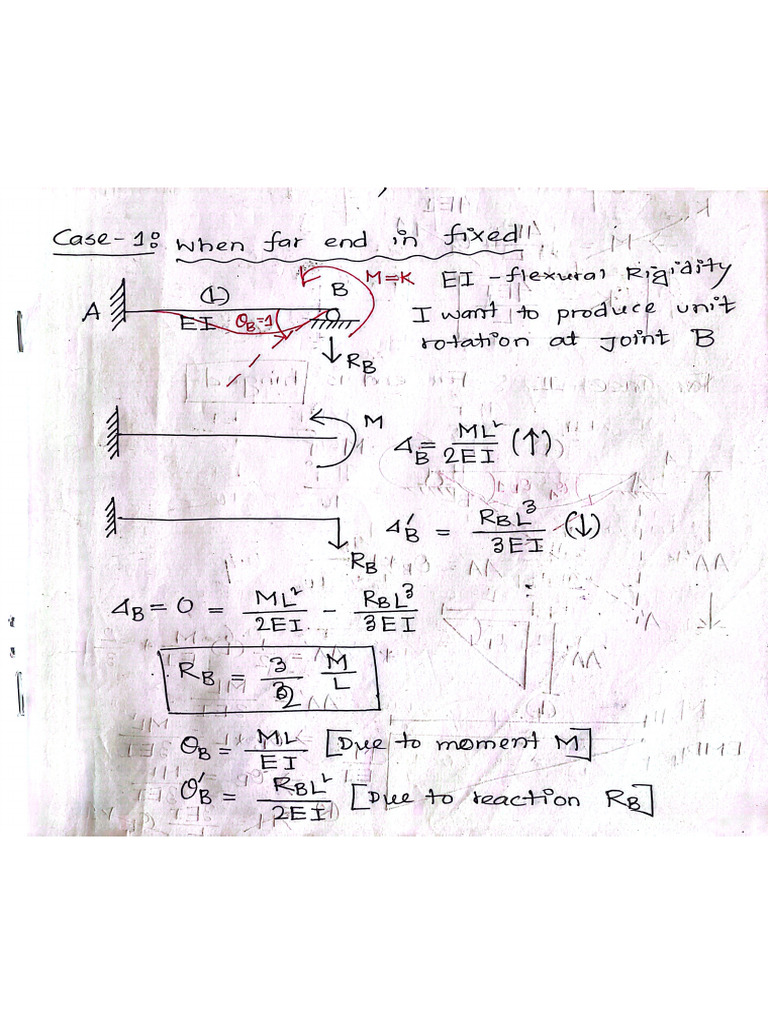 Case-1: When far end in fixed
(L) B M=K EI - flexural Rigidity
A EI θB=1 I want to produce unit
rotation at joint B
↓ RB
M ΔB = ML²/2EI (↑)
RB Δ'B = RBL³/3EI (↓)
ΔB = 0 = ML²/2EI - RBL³/3EI
RB = 3/2 M/L
θB = ML/EI [Due to moment M]
θ'B = RBL²/2EI [Due to reaction RB]